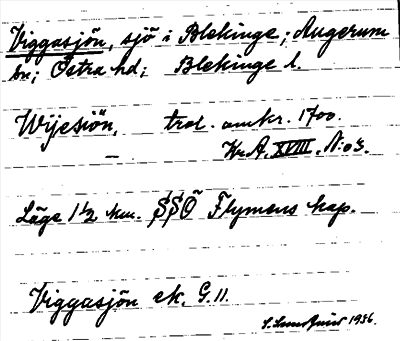 Viggasjön, sjö i Blekinge; Augerum
sn; Östra hd; Blekinge l.
Wijesiön, trol. omkr. 1700.
— Kr.A. XVIII. N:o 3.
Läge 1½ km. SSÖ Flymens kap.
Viggasjön ek. G.11.
1936.